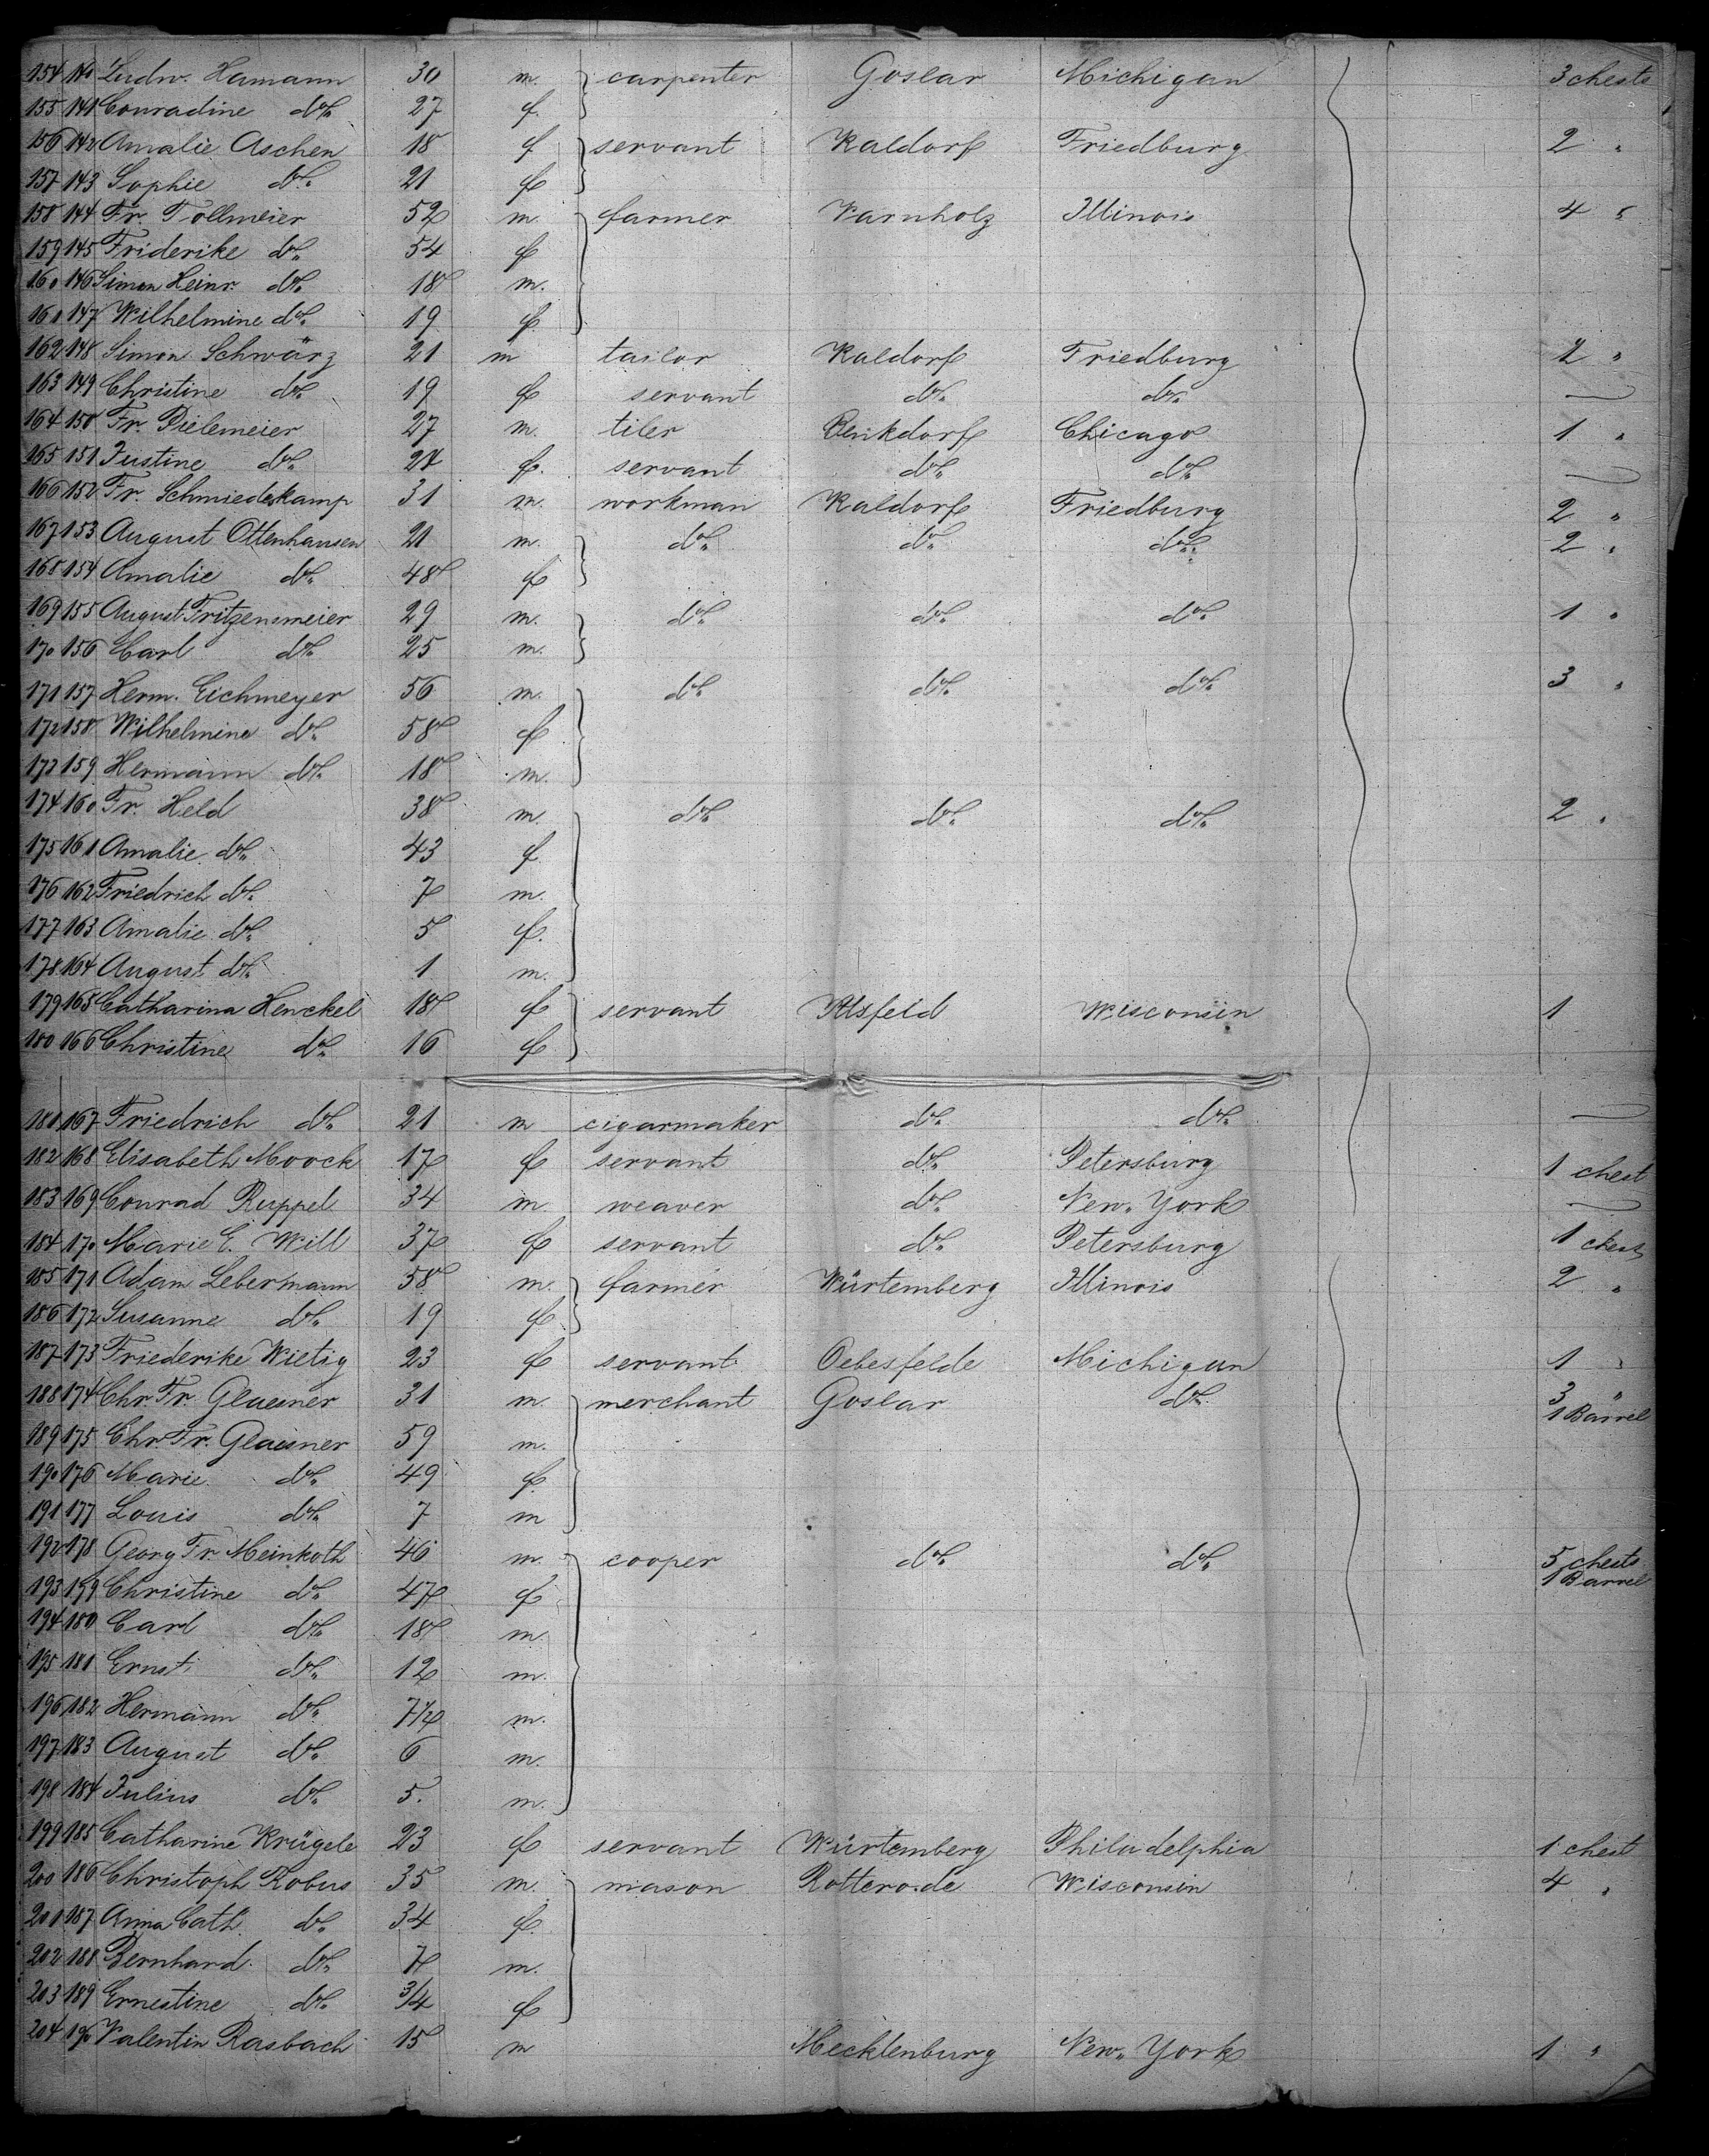 154 140 Ludw. Hamann 30 m. carpenter Goslar Michigan 3 chests
155 141 Conradine do. 27 f.
156 142 Amalie Aschen 18 f servant Kaldorf Friedburg 2 "
157 143 Sophie do. 21 f
158 144 Fr. Tollmeier 52 m. farmer Varnholz Illinois 4 "
159 145 Friderike do. 54 f
160 146 Simon Heinr. do. 18 m.
161 147 Wilhelmine do. 19 f.
162 148 Simon Schwärz 21 m tailor Kaldorf Friedburg 2 "
163 149 Christine do. 19 f servant do. do. —
164 150 Fr. Pielemeier 27 m. tiler Chicago 1 "
165 151 Justine do. 24 f. servant do. do. —
166 152 Fr. Schmiedeskamp 31 m. workman Kaldorf Friedburg 2 "
167 153 August Ottenhausen 21 m. do. do. do. 2 "
168 154 Amalie do. 48 f
169 155 August Fritzensmeier 29 m. do. do. do. 1 "
170 156 Carl do. 25 m.
171 157 Herm. Eichmeyer 56 m. do. do. do. 3 "
172 158 Wilhelmine do. 58 f
173 159 Hermann do. 18 m.
174 160 Fr. Held 38 m. do. do. do. 2 "
175 161 Amalie do. 43 f
176 162 Friedrich do. 7 m.
177 163 Amalie do. 5 f.
178 164 August do. 1 m.
179 165 Catharina Henckel 18 f servant Alsfeld Wisconsin 1
180 166 Christine do. 16 f
181 167 Friedrich do. 21 m cigarmaker do. do. —
182 168 Elisabeth Moock 17 f servant do. Petersburg 1 chest
183 169 Conrad Ruppel 34 m. weaver do. New-York —
184 170 Marie E. Will 37 f servant do. Petersburg 1 chest
185 171 Adam Lebermann 58 m. farmer Würtemberg Illinois 2 "
186 172 Susanne do. 19 f
187 173 Friederike Wietig 23 f servant Oebesfelde Michigan 1 "
188 174 Chr. Fr. Glaesner 31 m. merchant Goslar do. 3 "
1 Barrel
189 175 Chr. Fr. Glaesner 59 m.
190 176 Marie do. 49 f.
191 177 Louis do. 7 m
192 178 Georg Fr. Meinkoth 46 m. cooper do. do. 5 chests
1 Barrel
193 179 Christine do. 47 f
194 180 Carl do. 18 m.
195 181 Ernst do. 12 m.
196 182 Hermann do. 7 1/2 m.
197 183 August do. 6 m.
198 184 Julius do. 5. m.
199 185 Catharine Krügele 23 f servant Würtemberg Philadelphia 1 chest
200 186 Christoph Kobus 35 m. mason Rotterode Wisconsin 4 "
201 187 Anna Cath. do. 34 f.
202 188 Bernhard do. 7 m.
203 189 Ernestine do. 3/4 f
204 190 Valentin Rasbach 15 m Mecklenburg New-York 1 "